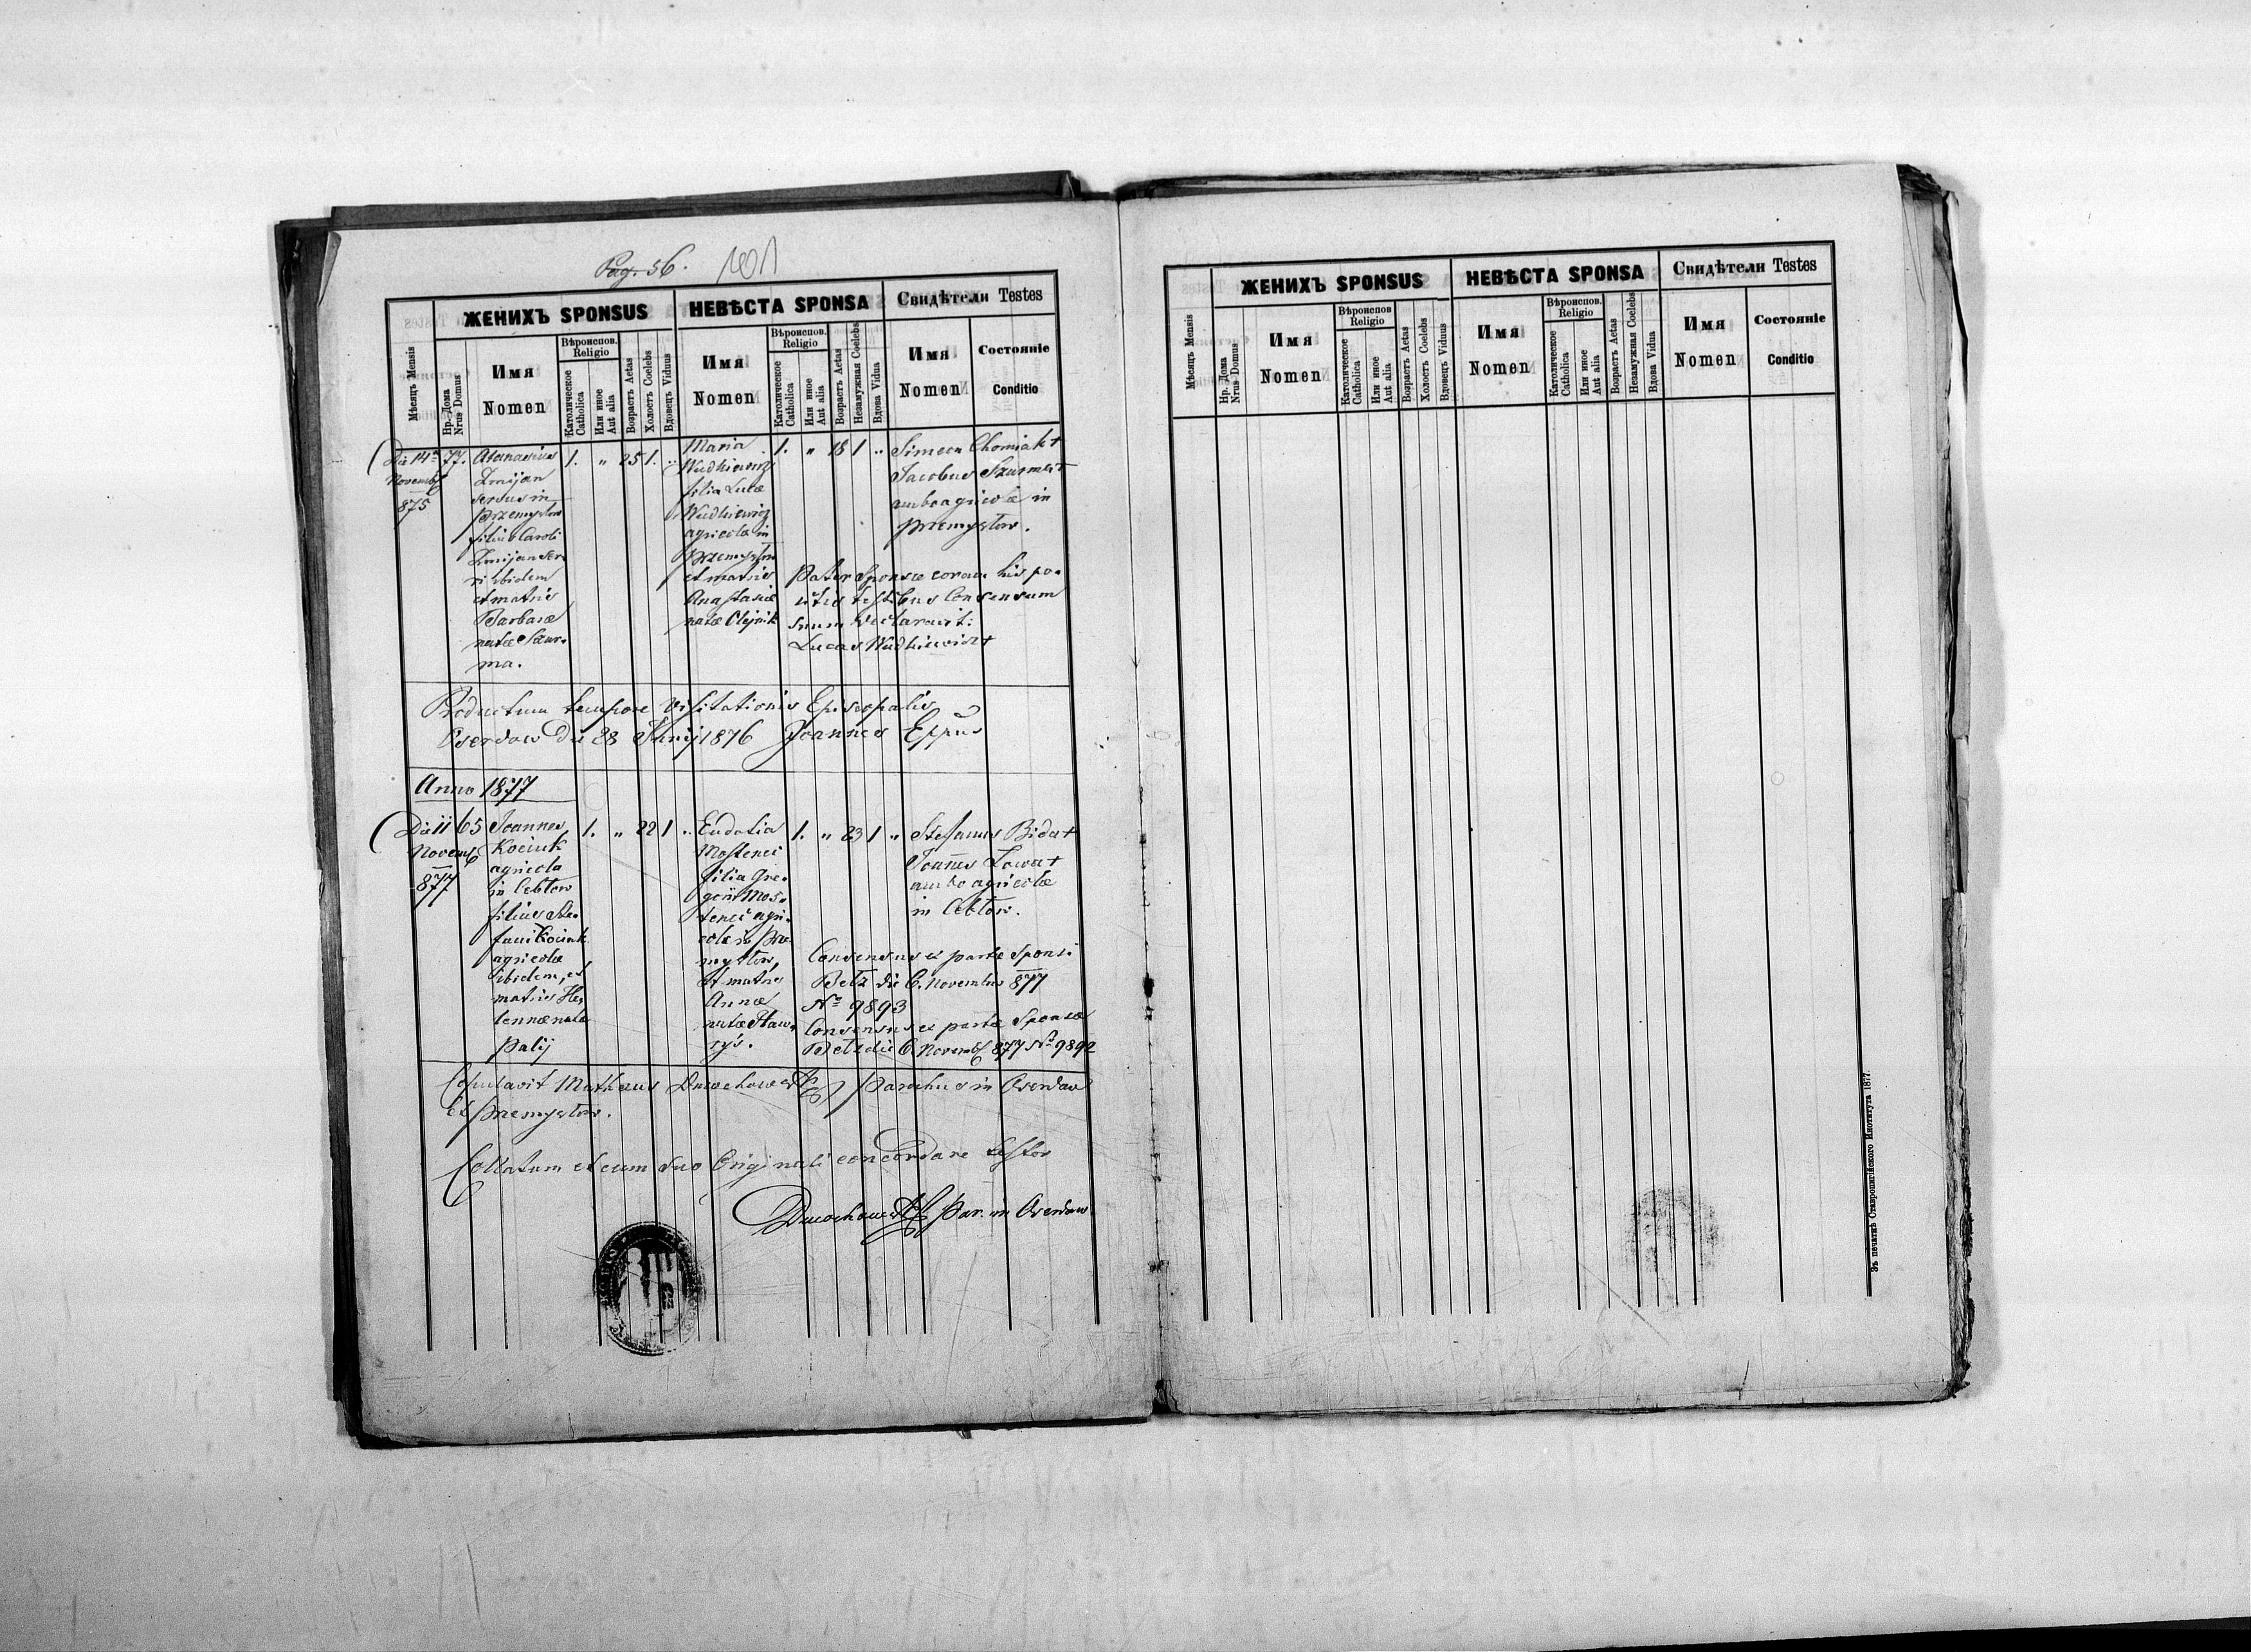 Pag. 56. 101
ЖЕНИХЪ SPONSUS НЕВѢСТА SPONSA Свидѣтели Testes
Мѣсяцъ Mensis
Нр. Дома
Nrus Domus
Имя
Nomen
Вѣроиспов.
Religio
Католическое
Catholica
Или иное
Aut alia
Возрастъ Aetas
Холостъ Coelebs
Вдовецъ Viduus
Имя
Nomen
Вѣроиспов.
Religio
Католическое
Catholica
Или иное
Aut alia
Возрастъ Aetas
Незамужная Coelebs
Вдова Vidua
Имя
Nomen
Состояніе
Conditio
Die 14ª
Novemb
875
77.
Atanasius
Zmijan
servus in
Przemysłow
filius Caroli
Zmijan ser-
vi ibidem
et matris
Barbaræ
natæ Szur-
ma.
1. " 25 1. "
Maria
Wudkiewicz
filia Lucæ
Wudkiewicz
agricolæ in
Przemysłow
et matris
Anastasiæ
natæ Olejnik
1. " 18 1 "
Simeon Chomiak +
Jacobus Szurma +
ambo agricolæ in
Przemysłow.
Pater Sponsæ coram his po-
sitis testibus Consensum
suum declaravit:
Lucas Wudkiewicz +
Productum tempore Visitationis Episcopalis
Oserdow die 28 1876 Joannes Eppus
Anno 1877
Die 11
Novemb
877
65
Joannes
Kociuk
agricola
in Cebłow
filius Ste-
fani Kociuk
agricolæ
ibidem, et
matris He-
lennæ natæ
Palij
1. " 22 1 "
Eudotia
Mostenci
filia Gre-
gorii Mos-
tenci agri-
colæ in Prze-
mysłow,
et matris
Annæ
natæ Staw-
rys.
1. " 23 1 "
Stefanus Bida +
Joannes Łowa +
ambo agricolæ
in Cebłow.
Consensus ex parte Sponsi
Bełz die 6. Novembris 877
Nº 9893
Consensus ex parte Sponsæ
Bełz die 6. Novemb 877 Nº 9892
Copulavit Matheus Dmochowski Parochus in Oserdow
et Przemysłow.
Collatum et cum suo Originali concordare testor
Dmochowski Par. in Oserdow
ЖЕНИХЪ SPONSUS НЕВѢСТА SPONSA Свидѣтели Testes
Мѣсяцъ Mensis
Нр. Дома
Nrus Domus
Имя
Nomen
Вѣроиспов
Religio
Католическое
Catholica
Или иное
Aut alia
Возрастъ Aetas
Холостъ Coelebs
Вдовецъ Viduus
Имя
Nomen
Вѣроиспов.
Religio
Католическое
Catholica
Или иное
Aut alia
Возрастъ Aetas
Незамужная Coelebs
Вдова Vidua
Имя
Nomen
Состояніе
Conditio
Зъ печатнѣ Ставропигійского Института 1877.